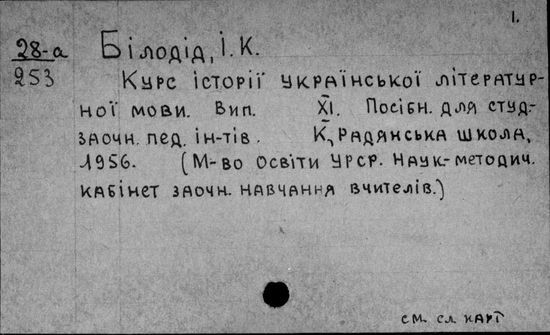 1.
28-а
253
Білодід, І. К.
Курс історії української літератур-
ної мови. Вип. XI. Посібн. для студ-
заочн. пед. ін-тів. К., Радянська школа,
1956. (М-во освіти УРСР. Наук.-методич.
кабінет заочн. навчання вчителів.)
см. сл. карт